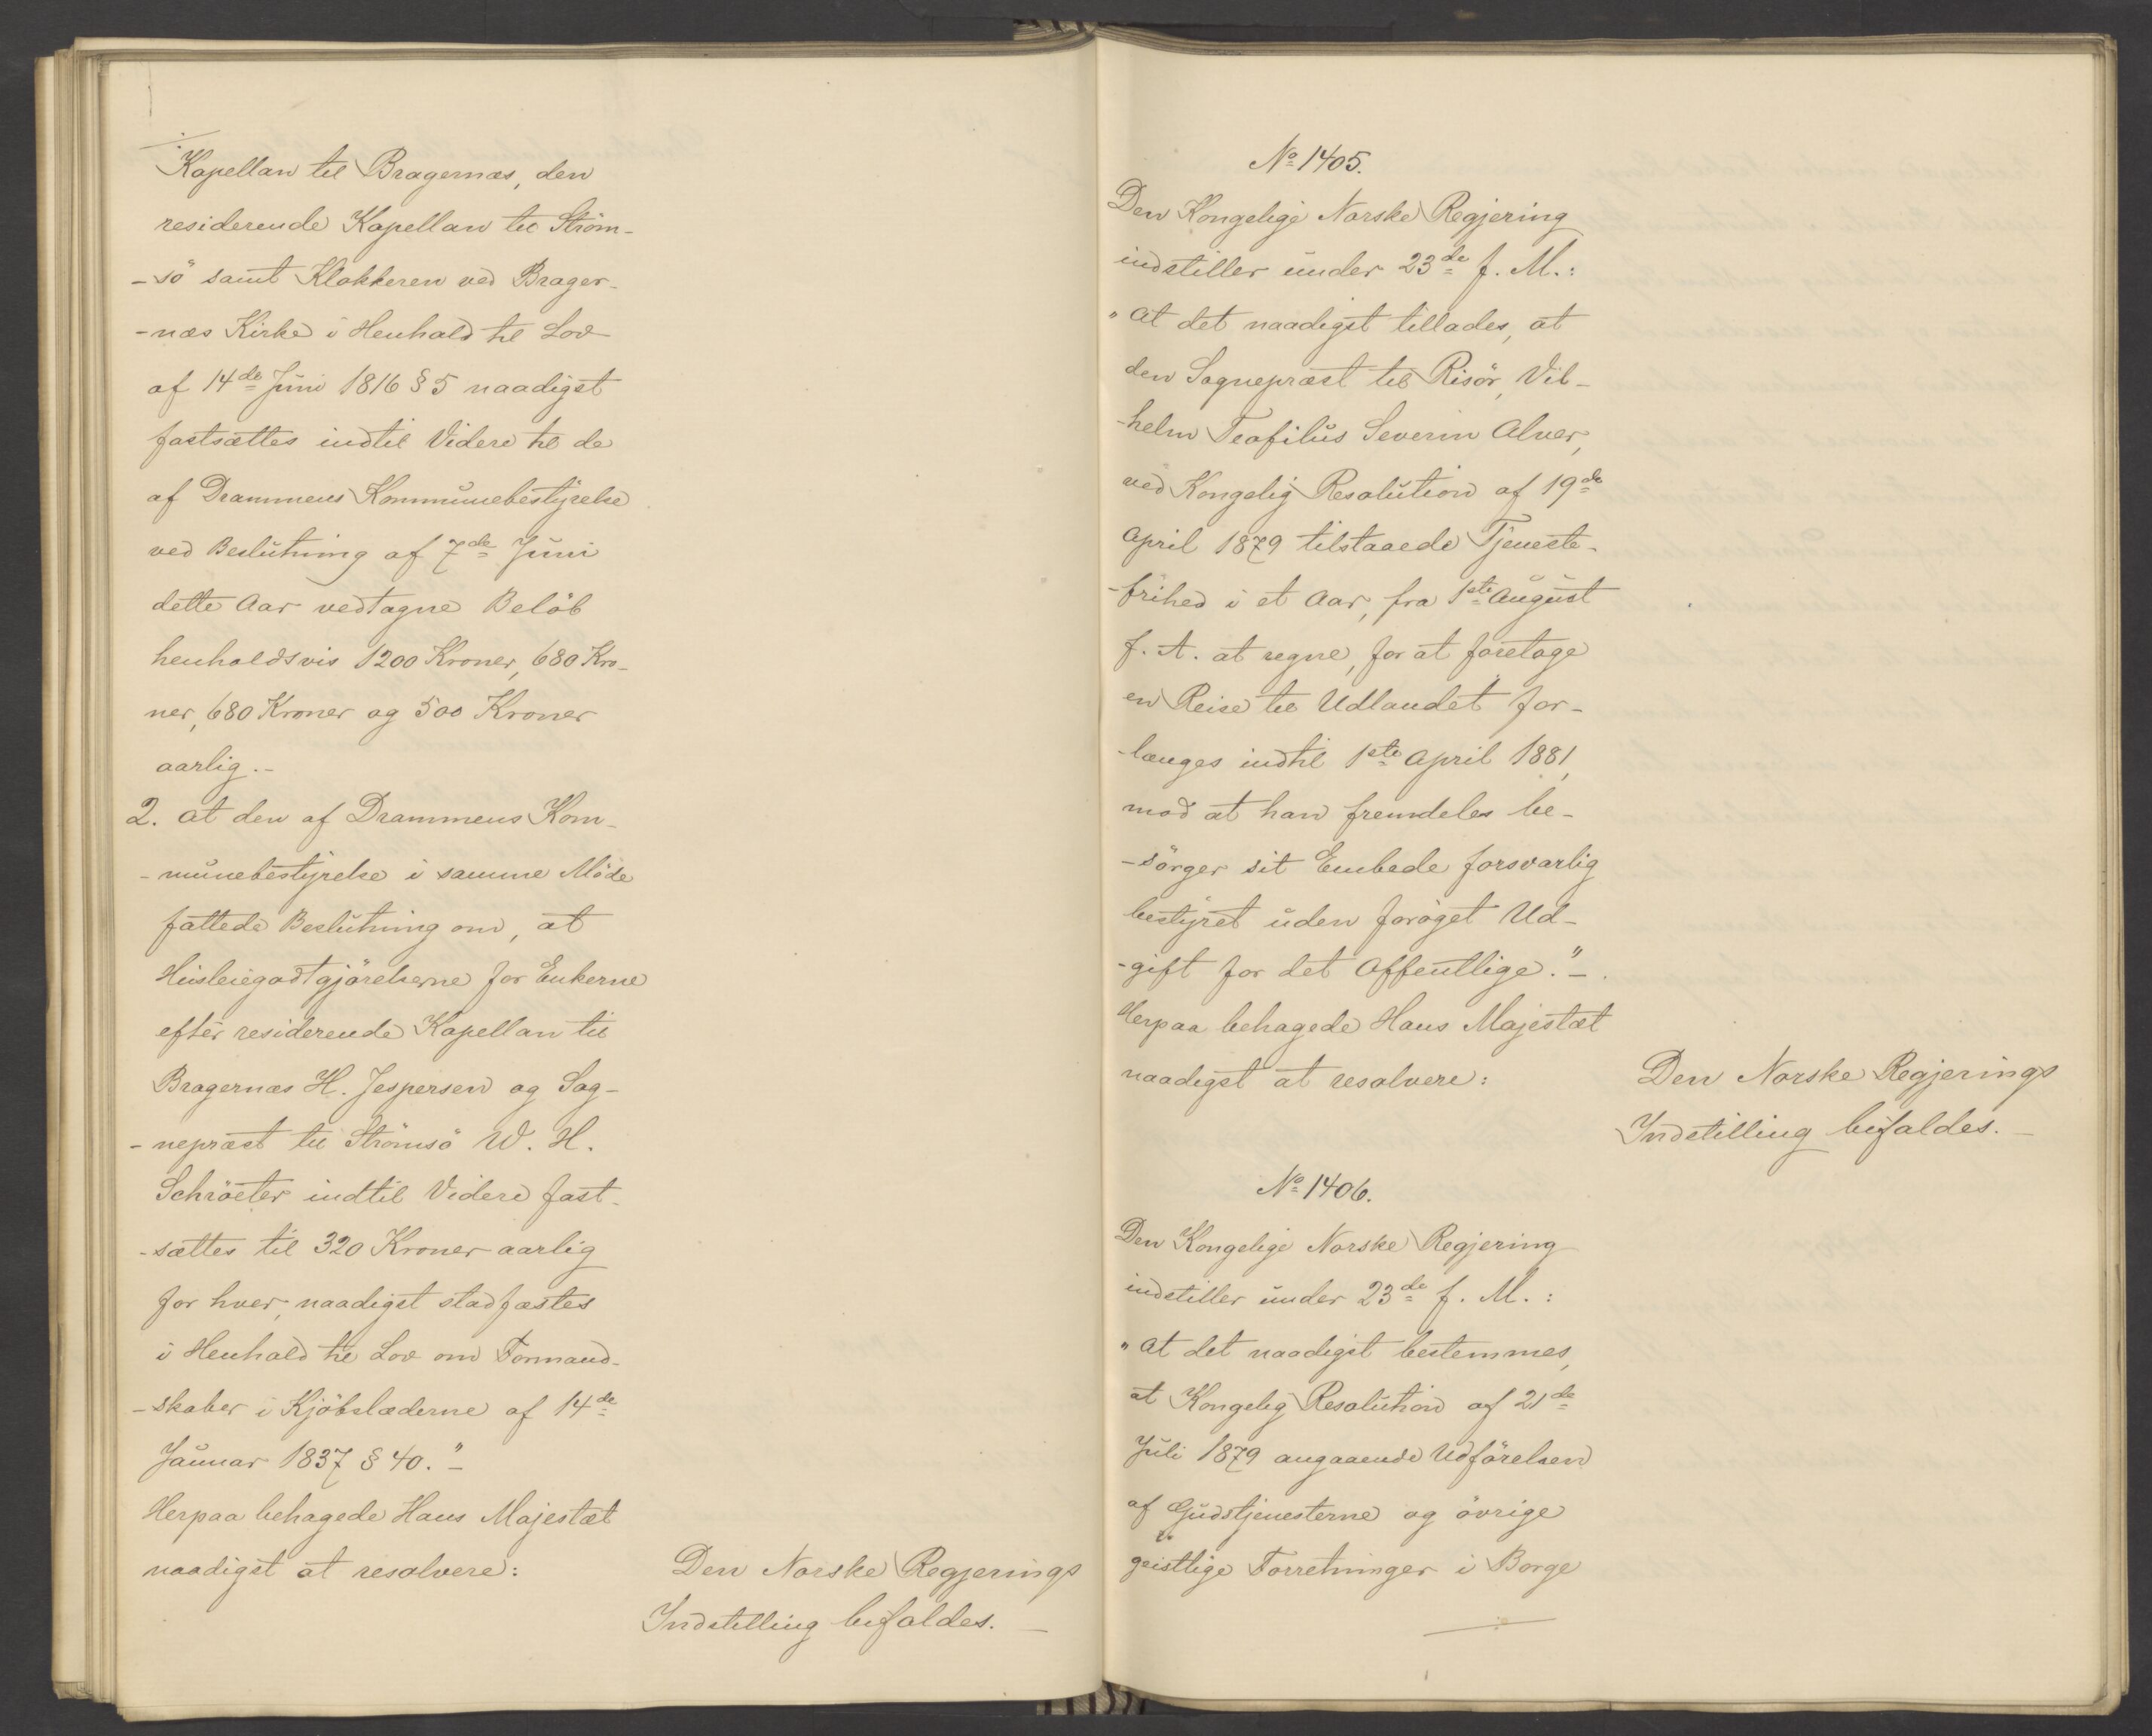 Kapellan til Bragernæs, den
residerende Kapellan til Ström-
-sö samt Klokkeren ved Brager-
-næs Kirke i Henhold til Lov
af 14de Juni 1816 § 5 naadigst
fastsættes indtil Videre til de
af Drammens Kommunebestyrelse
ved Beslutning af 7de Juni
dette Aar vedtagne Belöb
henholdsvis 1200 Kroner, 680 Kro-
ner, 680 Kroner og 500 Kroner
aarlig.-
2. at den af Drammens Kom-
-munebestyrelse i samme Möde
fattede Beslutning om, at
Husleiegodtgjörelserne for Enkerne
efter residerende Kapellan til
Bragernæs H. Jespersen og Sog-
-nepræst til Strömsö W. H.
Schröeter indtil Videre fast-
-sættes til 320 Kroner aarlig
for hver, naadigst stadfæstes
i Henhold til Lov om Formand-
-skaber i Kjöbstæderne af 14de
Januar 1837 § 40."-
Herpaa behagede Hans Majestæt
naadigst at resolvere:
Den Norske Regjerings
Indstilling bifaldes.-
No 1405.
Den Kongelige Norske Regjering
indstiller under 23de f. M.:
"at det naadigst tillades, at
den Sognepræst til Risör, Vil-
-helm Teofilus Severin Alver,
ved Kongelig Resolution af 19de
April 1879 tilstaaede Tjeneste-
-frihed i et Aar, fra 1ste August
f. A. at regne, for at foretage
en Reise til Udlandet for-
-længes indtil 1ste April 1881,
mod at han fremdeles be-
-sörger sit Embede forsvarlig
bestyret uden foröget Ud-
-gift for det Offentlige."-
Herpaa behagede Hans Majestæt
naadigst at resolvere:
Den Norske Regjerings
Indstilling bifaldes.-
No 1406.
Den Kongelige Norske Regjering
indstiller under 23de f. M.:
"at det naadigst bestemmes,
at Kongelig Resolution af 21de
Juli 1879 angaaende Udförelsen
af Gudstjenesterne og övrige
geistlige Forretninger i Borge